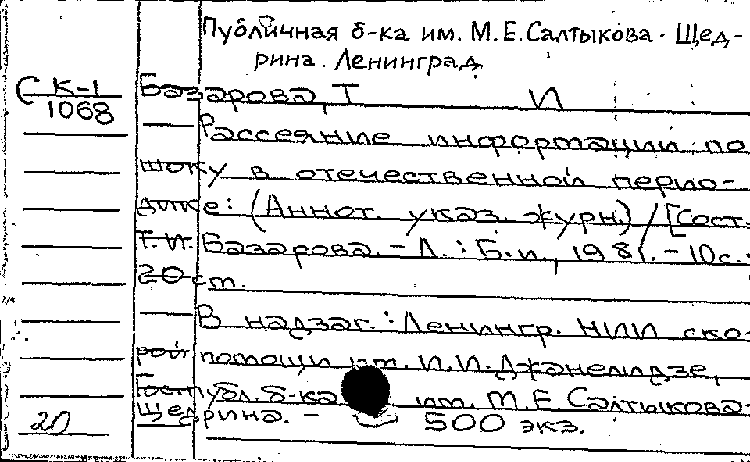 Публичная б-ка им. М.Е.Салтыкова-Щед-
рина. Ленинград
С К-1
1068
Базарова, Т И
Рассеяние информации по
шоку в отечественной перио-
дике: (Аннот. указ. журн.) / [Сост.
Т.И. Базарова. - Л. : Б.и., 1981. - 10с.:
20 см.
В надзаг.: Ленингр. НИИ ско-
рой помощи им. И.И.Джанелидзе,
Гос.публ. б-ка им. М.Е Салтыкова-
Щедрина. - 500 экз.
20